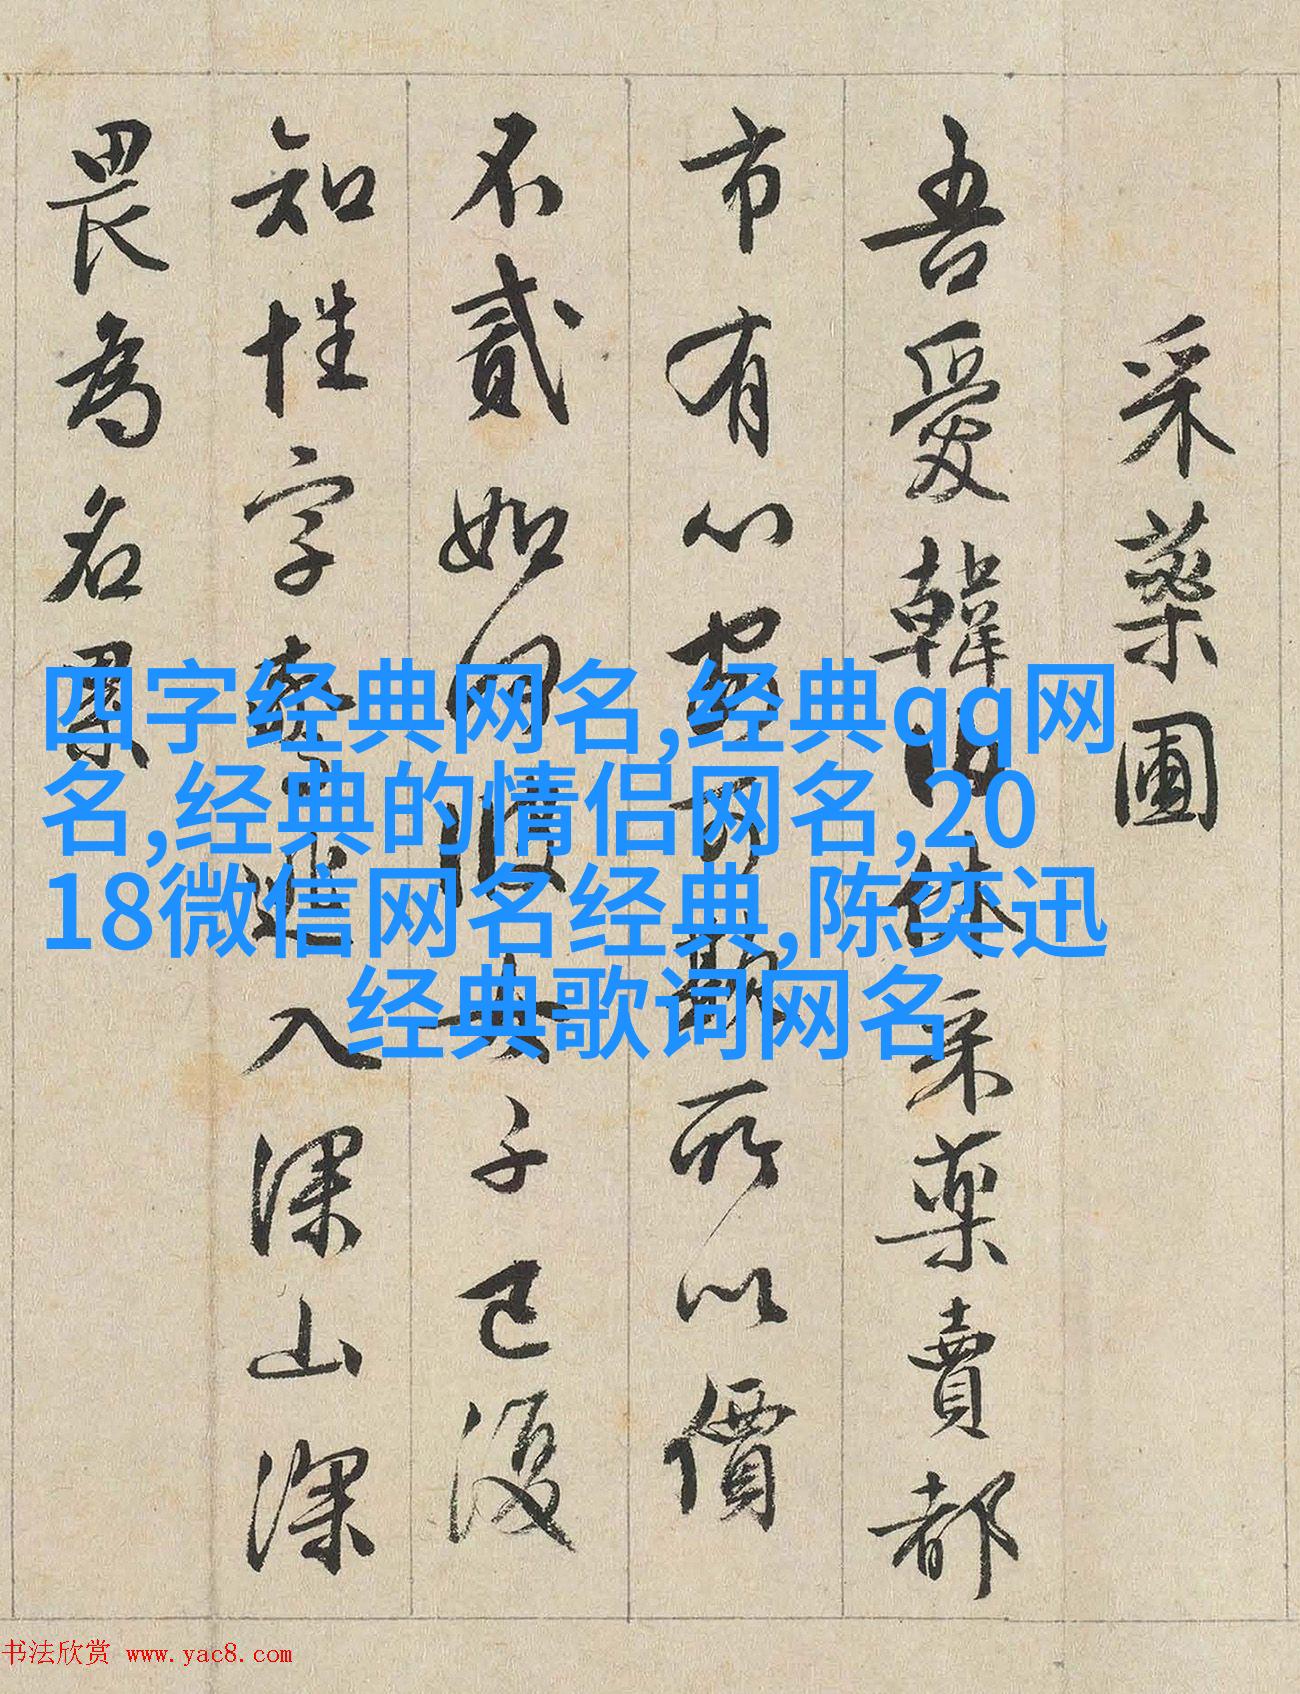 采藥圃
吾愛韓伯休采藥賣都
市有心可欺所以價
不貳如何彼女子已復
知性字逃入深山深
畏為名累
四字经典网名,经典qq网
名,经典的情侣网名,20
18微信网名经典,陈奕迅
经典歌词网名
书法欣赏 www.yac8.com